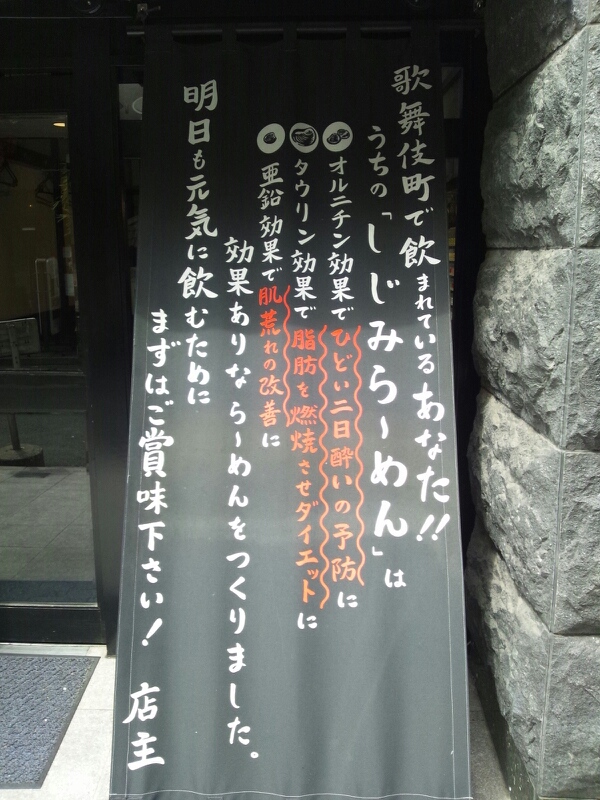 歌舞伎町で飲まれているあなた!!
うちの「しじみら〜めん」は
オルニチン効果でひどい二日酔いの予防に
タウリン効果で脂肪を燃焼させダイエットに
亜鉛効果で肌荒れの改善に
効果ありなら〜めんをつくりました。
明日も元気に飲むために
まずはご賞味下さい! 店主